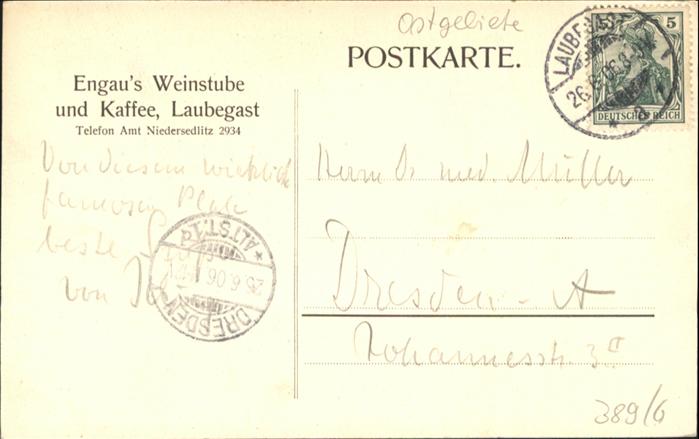 Ostgebiete
POSTKARTE.
Engau's Weinstube
und Kaffee, Laubegast
Telefon Amt Niedersedlitz 2934
LAUBEGAST
26.6.06.8-
* a *
5 5
DEUTSCHES REICH
Von diesem wirklich
famosen Platz
beste
von
DRESDEN
ALTST. 1
.6.06
Herrn Dr med. Müller
Dresden - A
Johannesstr 3
389/6